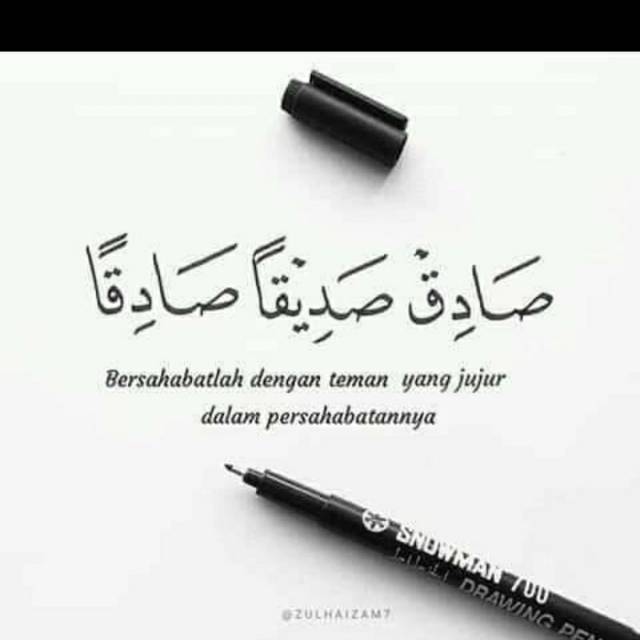 صَادِقْ صَدِيْقاً صَادِقًا
Bersahabatlah dengan teman yang jujur
dalam persahabatannya
SNOWMAN 700
DRAWING PEN
@ZULHAIZAM7